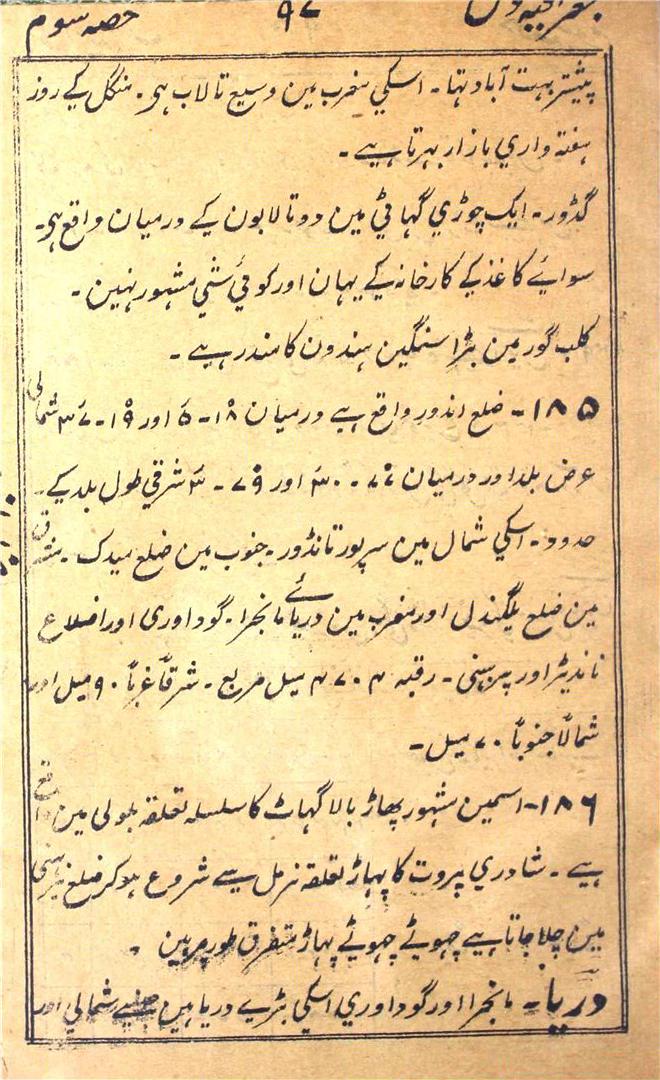 حصہ سوم ۹۷
پیشتر بہت آباد تہا۔ اسکي مغرب مین وسیع تالاب ہی۔ منگل کے روز
ہفتہ واري بازار بہرتا ہے۔
گڈور۔ ایک چوڑي گہاٹي مین دو تالابون کے درمیان واقع ہی۔
سوائے کاغذ کے کارخانہ کے یہان اور کوئي شي مشہور نہین۔
کلب گور مین بڑا سنگین ہندون کا مندر ہے۔
۱۸۵۔ ضلع اندور واقع ہے درمیان ۱۸۔ ۵ اور ۱۹۔ شمالي
عرض بلد اور درمیان ۷۷۔ ۳۰ اور ۷۹۔ ۳ شرقي طول بلد کے۔
حدود۔ اسکي شمال مین سرپور تانڈور۔ جنوب مین ضلع میدک۔ مشرق
مین ضلع یلگندل اور مغرب مین دریائے مانجرا۔ گوداوری اور اضلاع
ناندیڑ اور پربہنی۔ رقبہ ۴۷۰۴ میل مربع۔ شرقاً غرباً ۹۰ میل اور
شمالاً جنوباً ۷۰ میل۔
۱۸۶۔ اسمین مشہور پہاڑ بالا گہاٹ کا سلسلہ تعلقہ بلولی مین واقع
ہے۔ شادري پروت کا پہاڑ تعلقہ نرمل سے شروع ہوکر ضلع پربہنی
مین چلا جاتا ہے چہوٹے چہوٹے پہاڑ متفرق طور پر ہین۔
دریا۔ مانجرا اور گوداوري اسکي بڑے دریا ہین شمالي اور